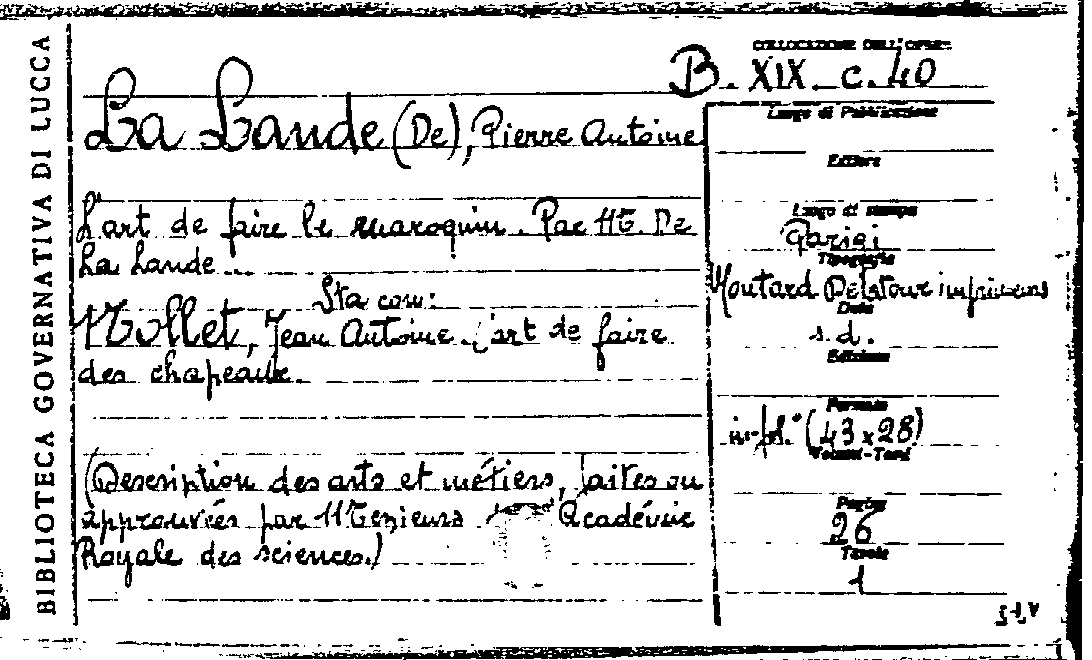 BIBLIOTECA GOVERNATIVA DI LUCCA
COLLOCAZIONE DELL'OPERA
B. XIX. c. 40
La Lande (De), Pierre Antoine
L'art de faire le maroquin. Par M. De
La Lande...
Sta con:
Nollet, Jean Antoine. L'art de faire
des chapeaux.
(Description des arts et métiers, faites ou
approuvées par Messieurs Académie
Royale des sciences.)
Luogo di Pubblicazione
Editore
Luogo di stampa
Parigi
Tipografia
Moutard Delatour imprimeurs
Data
s.d.
Edizione
Formato
in-fol.° (43x28)
Volumi-Tomi
Pagine
26
Tavole
1